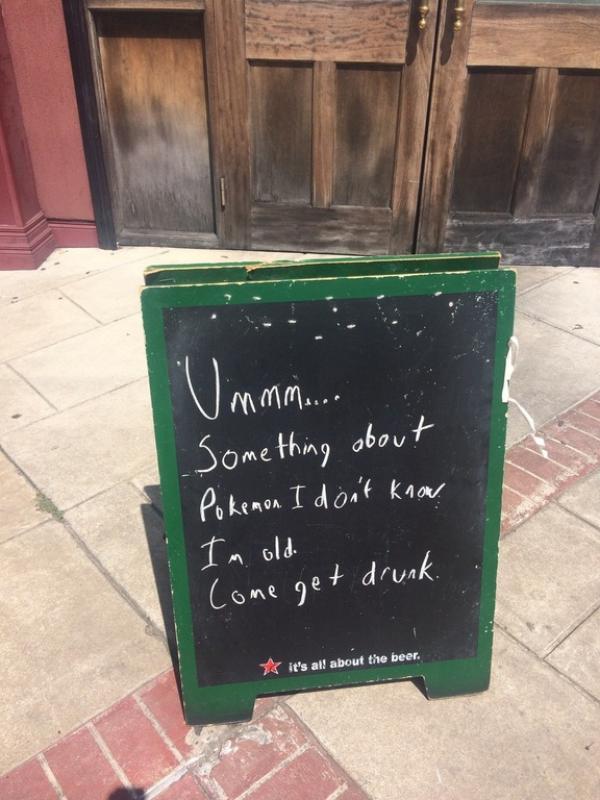 Ummm....
Something about
Pokemon I don't know
I'm old.
Come get drunk.
it's all about the beer.